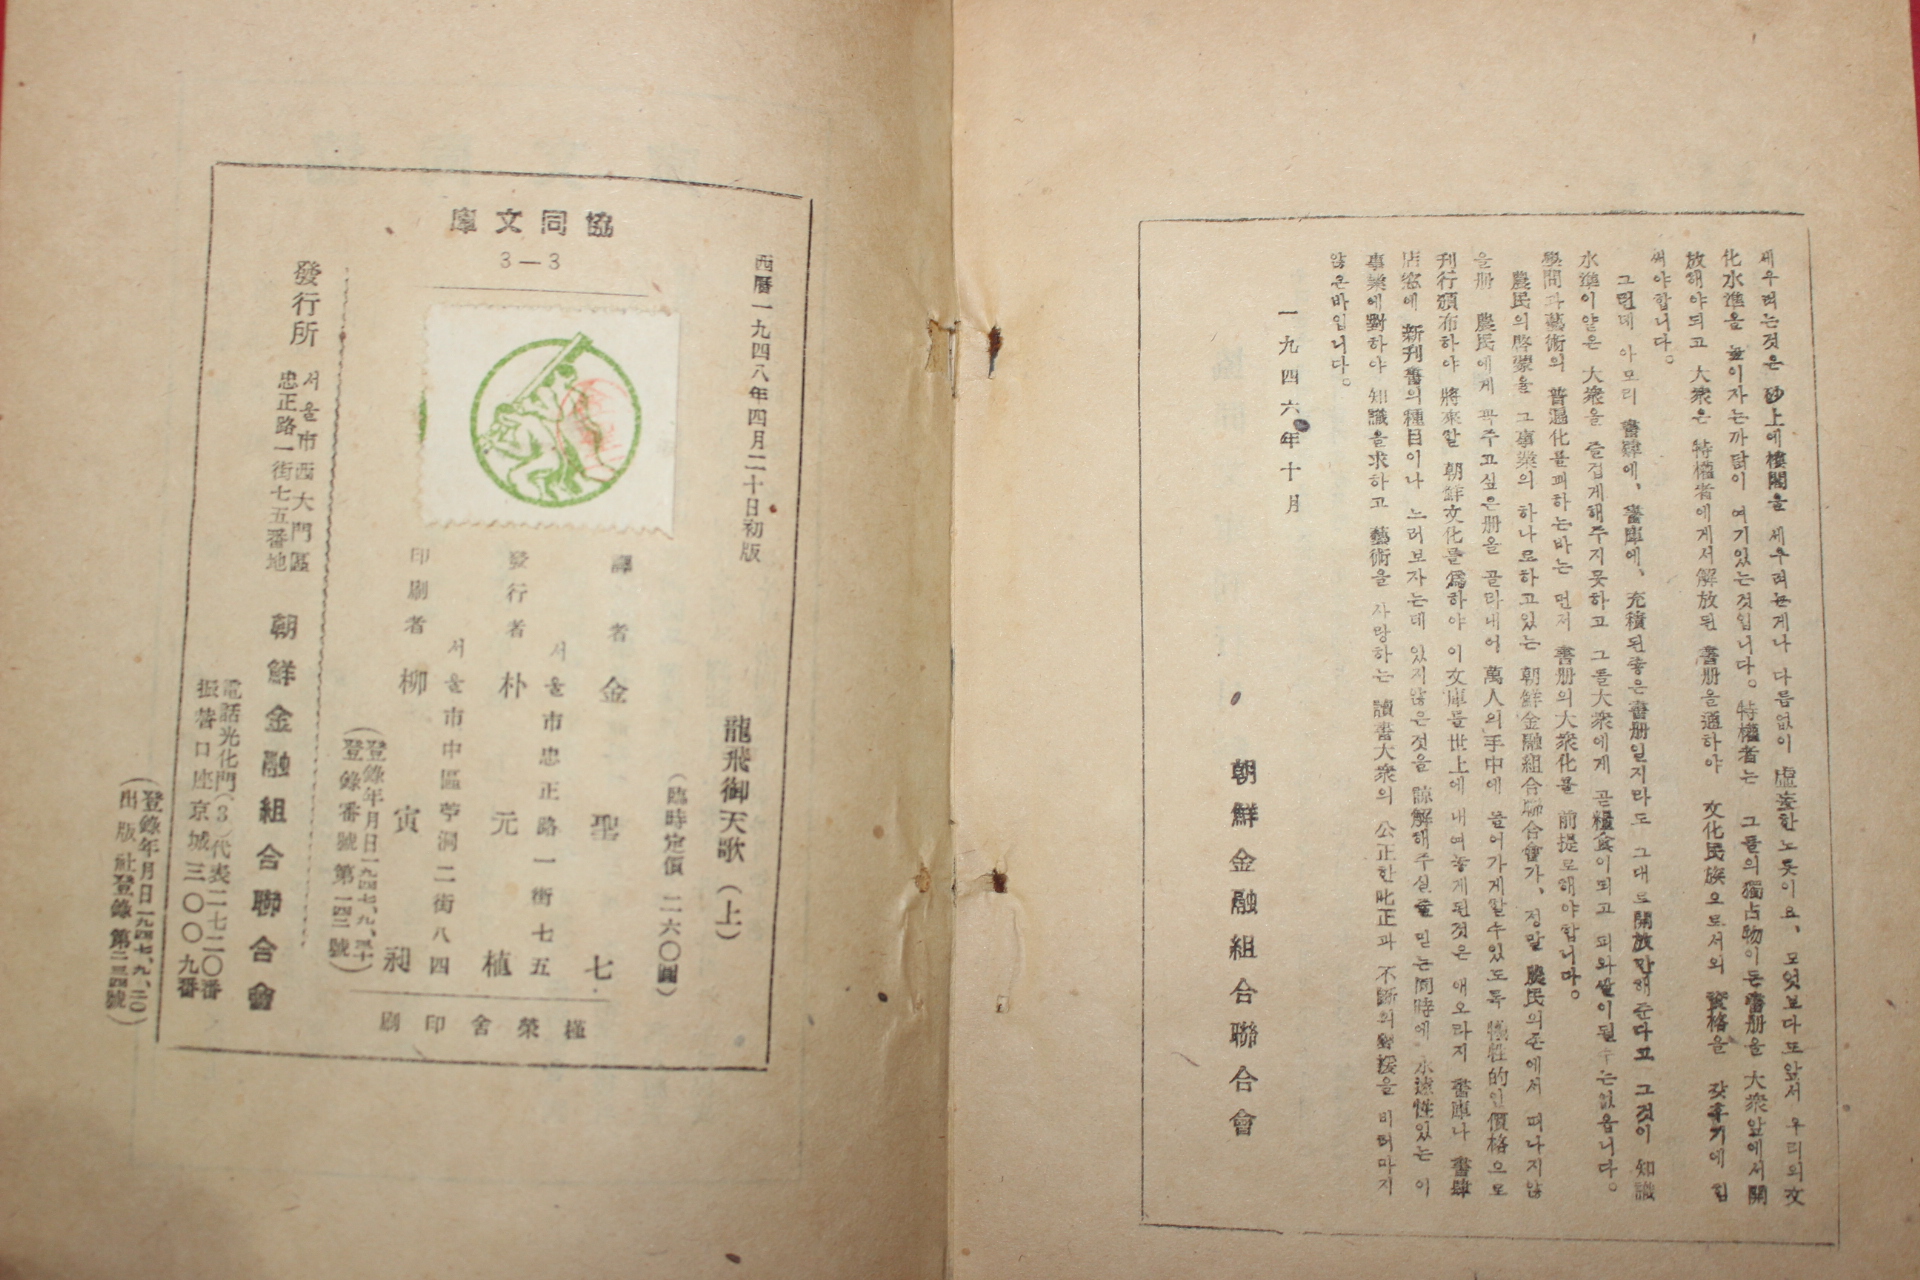 세우려는것은 砂上에樓閣을 세우려는게나 다름없이 虛妄한노릇이요、모엇보다도앞서 우리의文
化水準을 높이자는까닭이 여기있는것입니다。特權者는 그들의獨占物이든書册을 大衆앞에서開
放해야되고 大衆은 特權者에게서解放된 書册을通하야 文化民族으로서의 資格을 갖후기에 힘
써야합니다。
그런데 아모리 書肆에、書庫에、充積된좋은書册일지라도 그대로開放만해준다고 그것이 知識
水準이얕은 大衆을 즐겁게해주지못하고 그들大衆에게 곧糧食이되고 피와쌀이될수는없읍니다。
學問과藝術의 普遍化를꾀하는바는 먼저 書册의大衆化를 前提로해야합니다。
農民의啓蒙을 그事業의 하나로하고있는 朝鮮金融組合聯合會가、정말 農民의손에서 떠나지않
을册 農民에게 꼭주고싶은册을 골라내어 萬人의手中에 들어가게할수있도록 犧牲的인價格으로
刊行頒布하야 將來할 朝鮮文化를爲하야 이文庫를世上에 내여놓게된것은 애오라지 書庫나 書肆
店窓에 新刊書의種目이나 느러보자는데 있지않은것을 諒解해주실줄 믿는同時에 永遠性있는 이
事業에對하야 知識을求하고 藝術을 사랑하는 讀書大衆의 公正한叱正과 不斷의聲援을 비러마지
않은바입니다。
一九四六年十月
朝鮮金融組合聯合會
協同文庫
3—3
西曆一九四八年四月二十日初版
龍飛御天歌(上)
(臨時定價 二六〇圓)
譯者 金聖七
서울市忠正路一街七五
發行者 朴元植
서울市中區苧洞二街八四
印刷者 柳寅昶
(登錄年月日一九四七、九、三十
登錄番號第一四二號)
槿榮舍印刷
發行所
서울市西大門區
忠正路一街七五番地
朝鮮金融組合聯合會
電話光化門(3)代表二七二〇番
振替口座京城三〇〇九番
(登錄年月日一九四七、九、二〇
出版社登錄第二三四號)